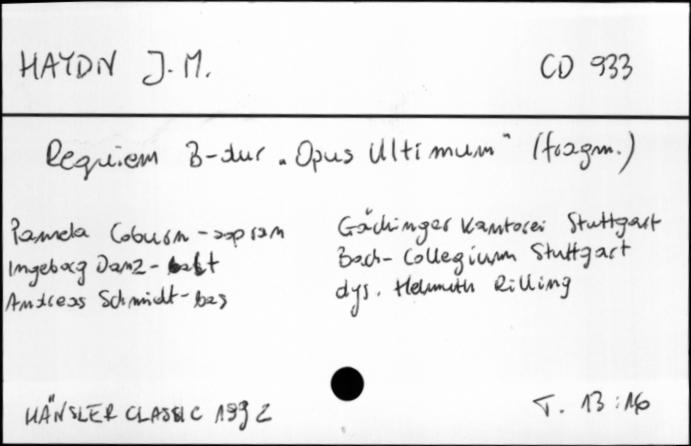 HAYDN J. M. CD 933
Requiem B-dur „Opus Ultimum” (fragm.)
Pamela Coburn - sopran
Ingeborg Danz - alt
Andreas Schmidt - bas
Gächinger Kantorei Stuttgart
Bach-Collegium Stuttgart
dyr. Helmuth Rilling
HÄNSLER CLASSIC 1992
T. 13:16